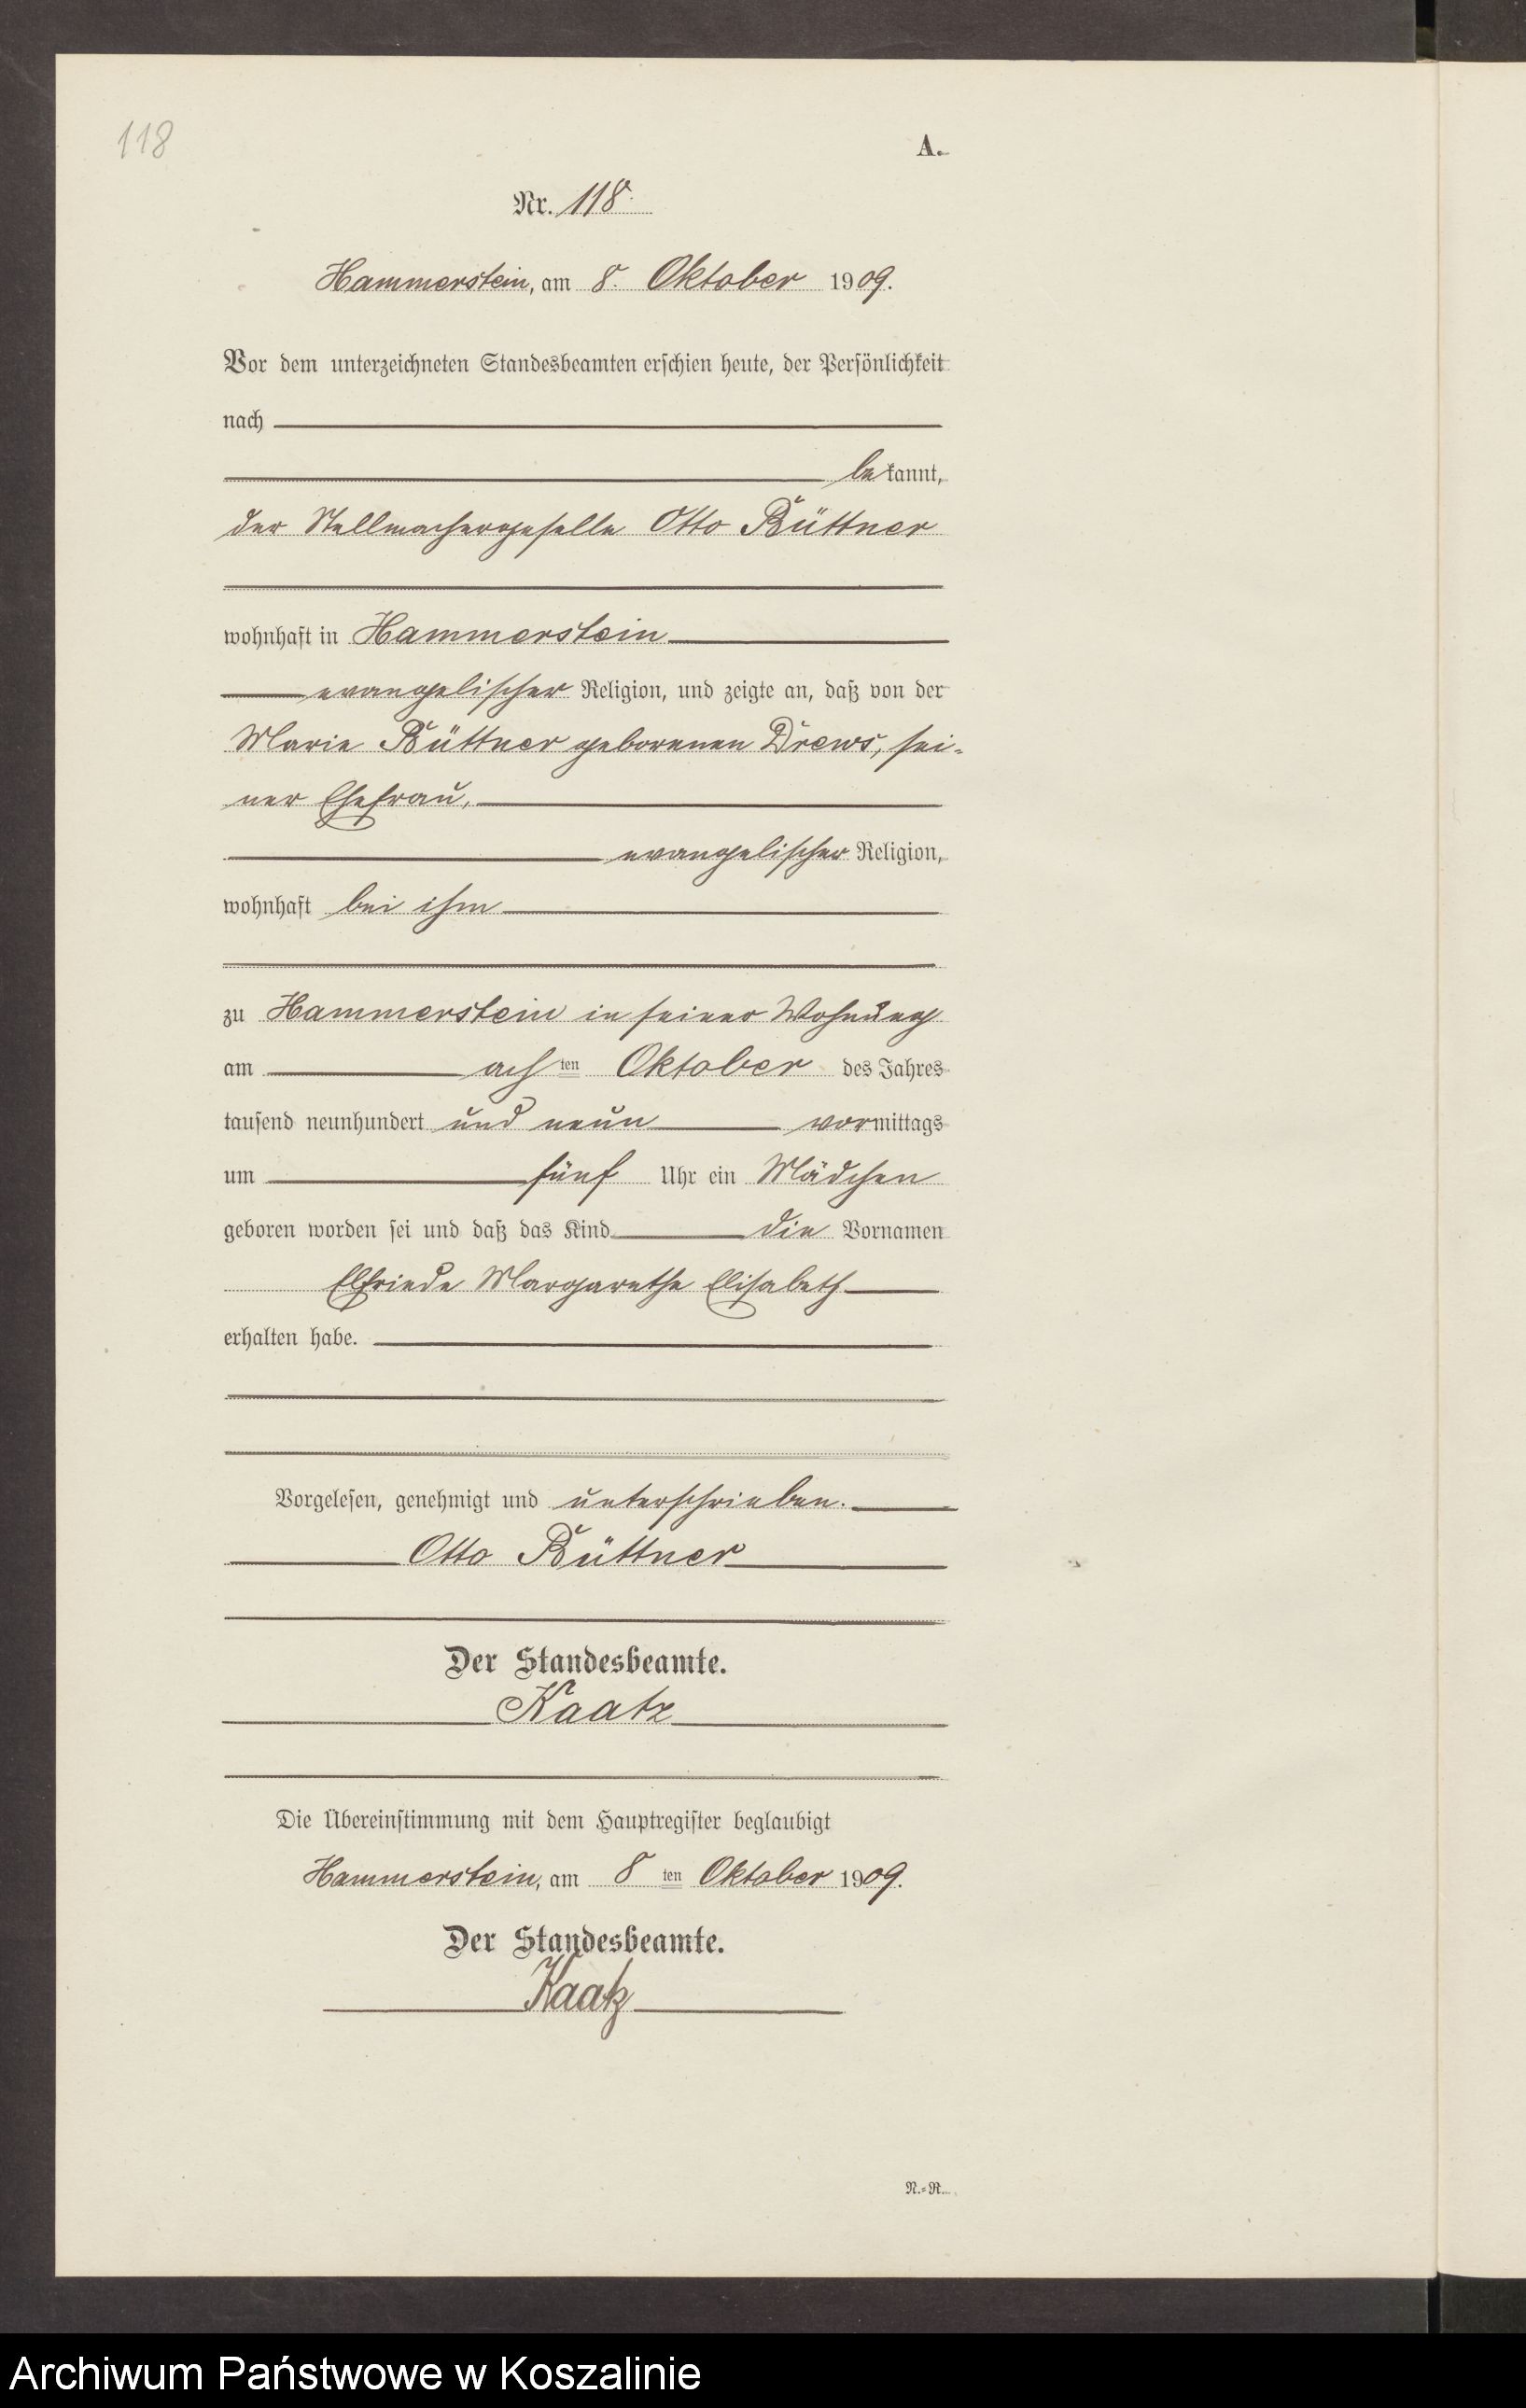 118
A.
Nr. 118.
Hammerstein, am 8. Oktober 1909.
Vor dem unterzeichneten Standesbeamten erschien heute, der Persönlichkeit
nach
bekannt,
der Stellmachergeselle Otto Büttner
wohnhaft in Hammerstein
evangelischer Religion, und zeigte an, daß von der
Marie Büttner geborenen Drews, sei-
ner Ehefrau,
evangelischer Religion,
wohnhaft bei ihm
zu Hammerstein in seiner Wohnung
am achten Oktober des Jahres
tausend neunhundert und neun vormittags
um fünf Uhr ein Mädchen
geboren worden sei und daß das Kind die Vornamen
Elfriede Margarethe Elisabeth
erhalten habe.
Vorgelesen, genehmigt und unterschrieben.
Otto Büttner
Der Standesbeamte.
Kaatz
Die Übereinstimmung mit dem Hauptregister beglaubigt
Hammerstein, am 8ten Oktober 1909.
Der Standesbeamte.
Kaatz
N.-R.
Archiwum Państwowe w Koszalinie